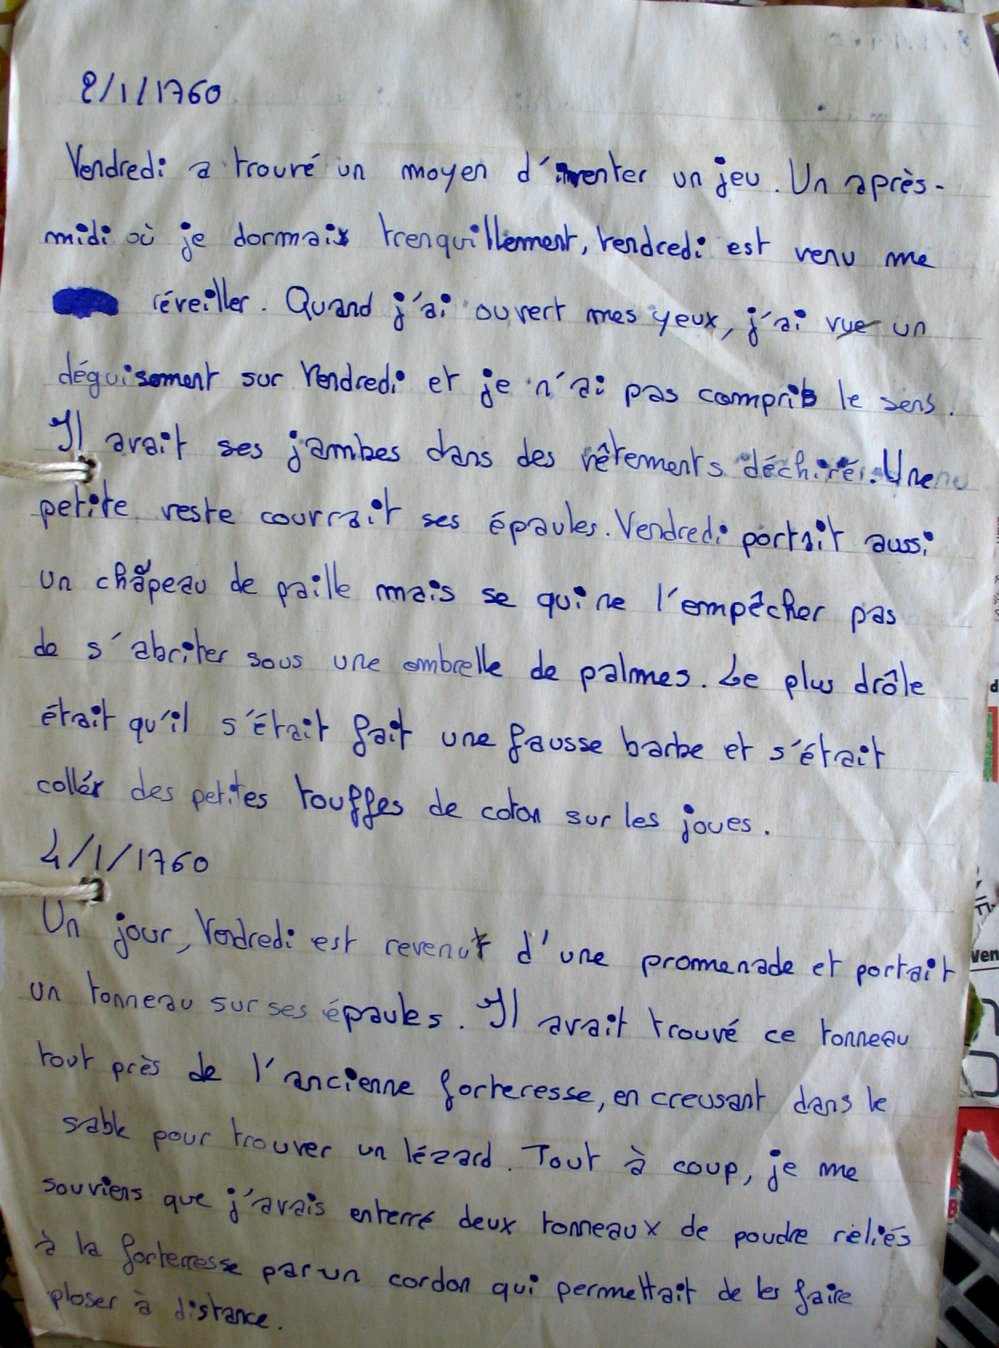 2/1/1760
Vendredi a trouvé un moyen d'inventer un jeu. Un après-
midi où je dormais trenquillement, vendredi est venu me
réveiller. Quand j'ai ouvert mes yeux, j'ai vue un
déguisement sur Vendredi et je n'ai pas compris le sens.
Il avait ses jambes dans des vêtements déchirés. Une
petite veste courrait ses épaules. Vendredi portait aussi
un châpeau de paille mais se qui ne l'empêcher pas
de s'abriter sous une ombrelle de palmes. Le plus drôle
était qu'il s'était fait une fausse barbe et s'était
coller des petites touffes de coton sur les joues.
4/1/1760
Un jour, Vendredi est revenut d'une promenade et portait
un tonneau sur ses épaules. Il avait trouvé ce tonneau
tout près de l'ancienne forteresse, en creusant dans le
sable pour trouver un lézard. Tout à coup, je me
souviens que j'avais enterré deux tonneaux de poudre reliés
à la forterresse par un cordon qui permettait de les faire
ploser à distance.
Ven